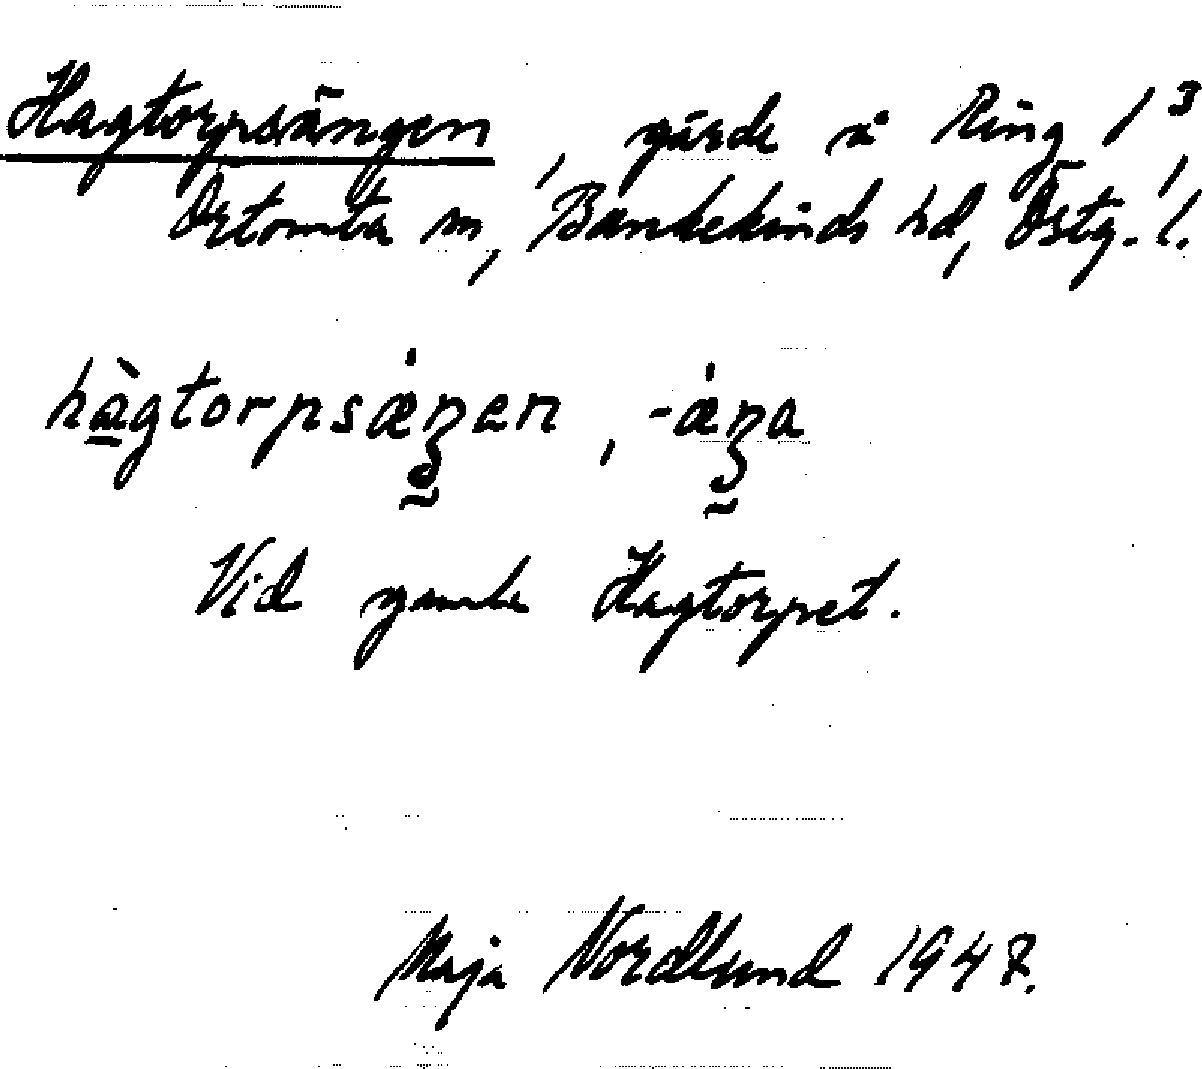 Hagtorpsängen, gärde å Ring 1³,
Örtomta sn, Bankekinds hd, Östg. l.
hàgtorpsæŋen, -æŋa
Vid gamla Hagtorpet.
Maja Nordlund 1947.